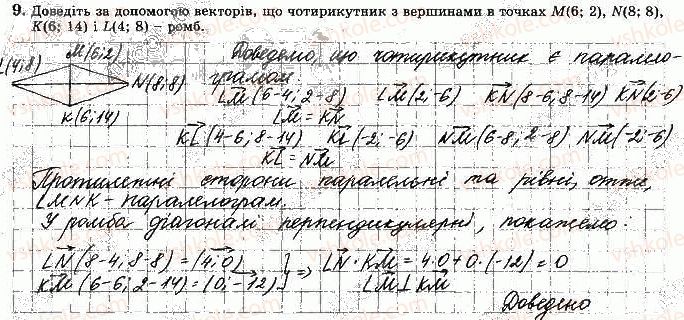 9. Доведіть за допомогою векторів, що чотирикутник з вершинами в точках M(6; 2), N(8; 8),
K(6; 14) і L(4; 8) – ромб.
M(6;2)
L(4;8)
N(8;8)
K(6;14)
Доведемо, що чотирикутник є парале-
грамом.
LM(6-4; 2-8) LM(2;-6) KN(8-6; 8-14) KN(2;-6)
LM = KN
KL(4-6, 8-14) KL(-2;-6) NM(6-8; 2-8) NM(-2;-6)
KL = NM
Протилежні сторони паралельні та рівні, отже,
LMNK - паралелограм.
У ромба діагоналі перпендикулярні, покажемо:
LN(8-4, 8-8) = (4;0) } => LN · KM = 4·0+0·(-12) = 0
KM(6-6; 2-14) = (0;-12) LM ⊥ KM
Доведено